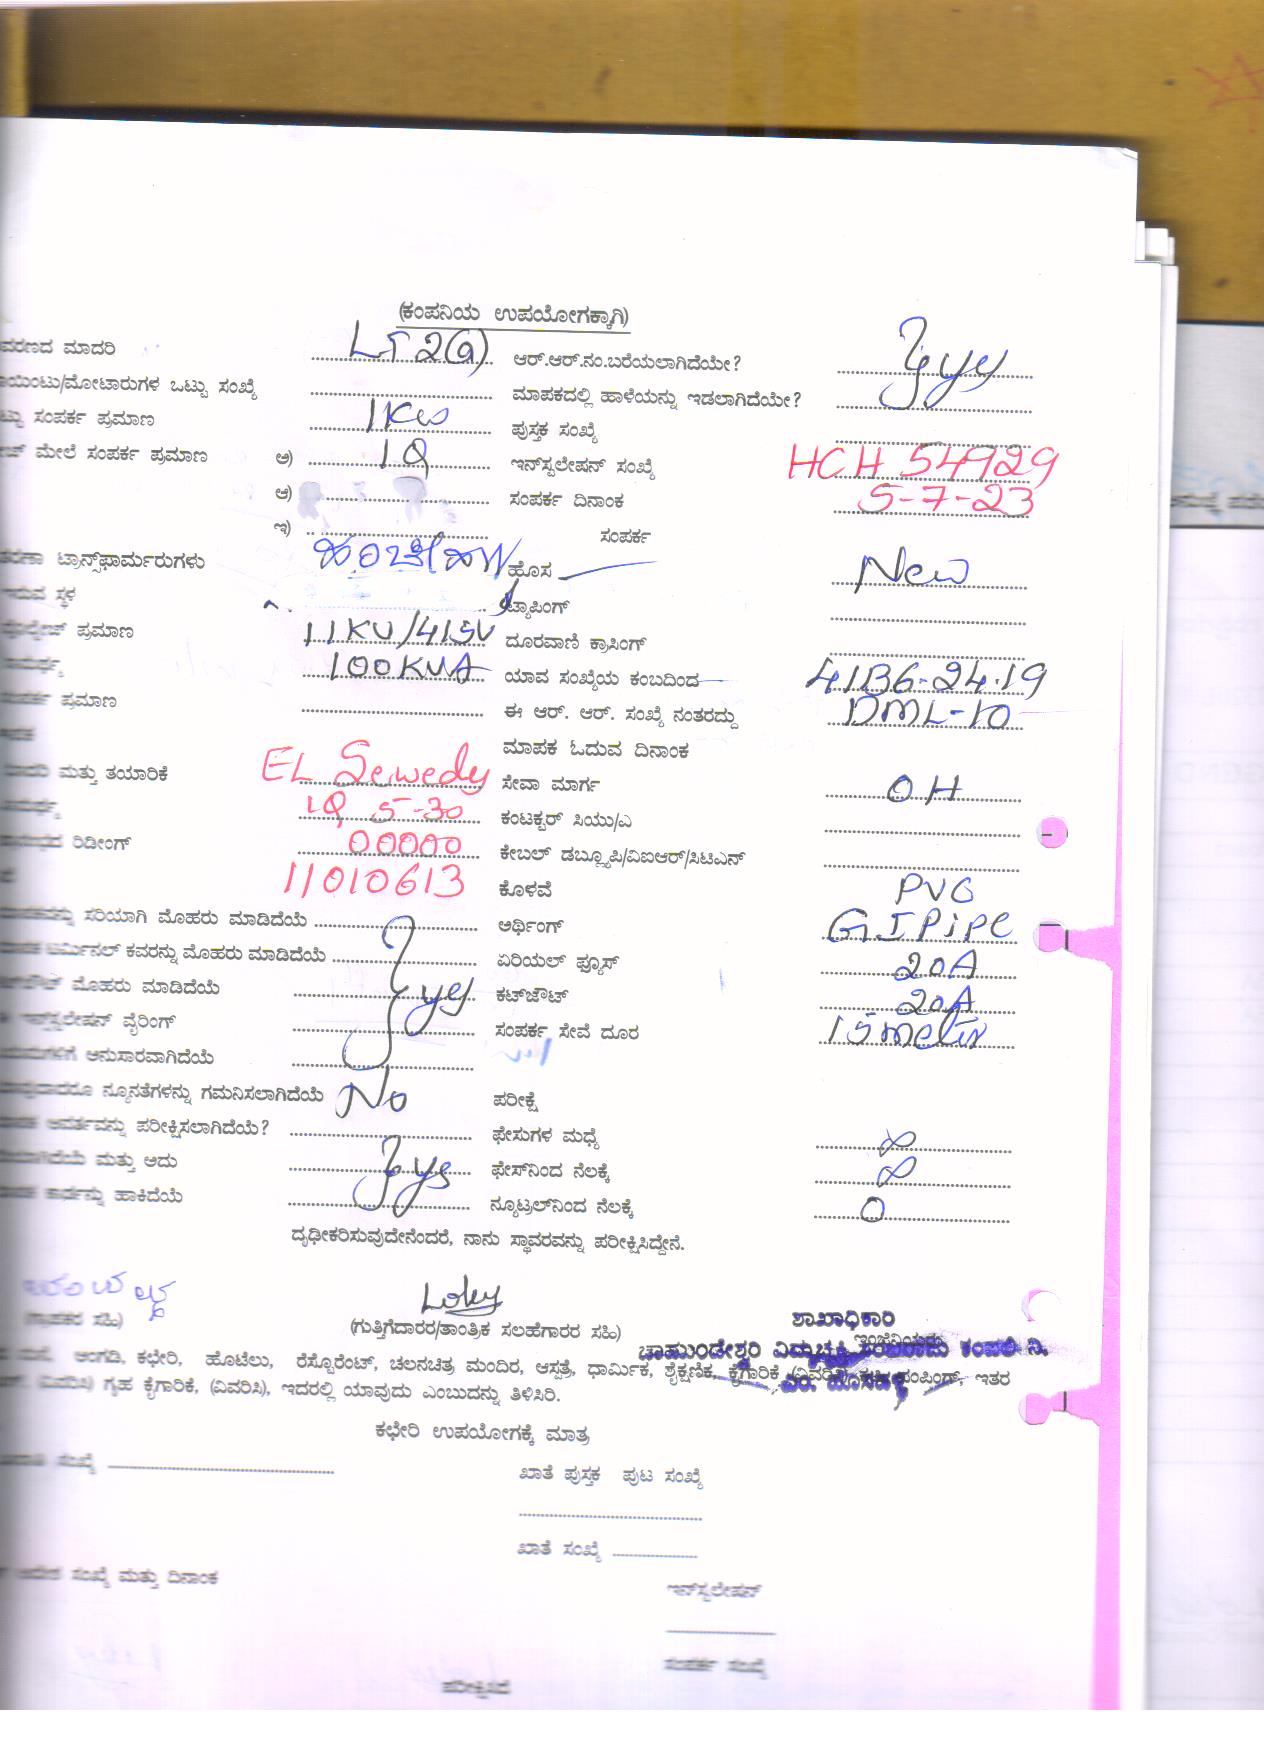 (ಕಂಪನಿಯ ಉಪಯೋಗಕ್ಕಾಗಿ)
ಮಾದರಿ LT 2(a) ಆರ್.ಆರ್.ನಂ.ಬರೆಯಲಾಗಿದೆಯೇ? yes
ಮೋಟಾರುಗಳ ಒಟ್ಟು ಸಂಖ್ಯೆ ಮಾಪಕದಲ್ಲಿ ಹಾಳೆಯನ್ನು ಇಡಲಾಗಿದೆಯೇ?
ಸಂಪರ್ಕ ಪ್ರಮಾಣ 1KW ಪುಸ್ತಕ ಸಂಖ್ಯೆ
ಮೇಲೆ ಸಂಪರ್ಕ ಪ್ರಮಾಣ ಅ) 1Q ಇನ್‌ಸ್ಟಲೇಷನ್ ಸಂಖ್ಯೆ HCH 54929
ಆ) ಸಂಪರ್ಕ ದಿನಾಂಕ 5-7-23
ಇ) ಸಂಪರ್ಕ
ಟ್ರಾನ್ಸ್‌ಫಾರ್ಮರುಗಳು ಹೊಸ New
ಇರುವ ಸ್ಥಳ ಟ್ಯಾಪಿಂಗ್
ಪ್ರಮಾಣ 11KV/415V ದೂರವಾಣಿ ಕ್ರಾಸಿಂಗ್
100KVA ಯಾವ ಸಂಖ್ಯೆಯ ಕಂಬದಿಂದ 41B6-24.19
ಸಂಪರ್ಕ ಪ್ರಮಾಣ ಈ ಆರ್. ಆರ್. ಸಂಖ್ಯೆ ನಂತರದ್ದು DML-10
ಮಾಪಕ ಓದುವ ದಿನಾಂಕ
ಮತ್ತು ತಯಾರಿಕೆ EL Sewedy ಸೇವಾ ಮಾರ್ಗ OH
1Q 5-30 ಕಂಟಕ್ಟರ್ ಸಿಯು/ಎ
ರಿಡೀಂಗ್ 00000 ಕೇಬಲ್ ಡಬ್ಲ್ಯೂಪಿ/ವಿಐಆರ್/ಸಿಟಿಎನ್
11010613 ಕೊಳವೆ PVC
ಸರಿಯಾಗಿ ಮೊಹರು ಮಾಡಿದೆಯೆ ಅರ್ಥಿಂಗ್ GI Pipe
ಟರ್ಮಿನಲ್ ಕವರನ್ನು ಮೊಹರು ಮಾಡಿದೆಯೆ ಏರಿಯಲ್ ಫ್ಯೂಸ್ 20A
ಮೊಹರು ಮಾಡಿದೆಯೆ yes ಕಟ್‌ಔಟ್ 20A
ಇನ್‌ಸ್ಟಲೇಷನ್ ವೈರಿಂಗ್ ಸಂಪರ್ಕ ಸೇವೆ ದೂರ 15 meter
ಅನುಸಾರವಾಗಿದೆಯೆ
ನ್ಯೂನತೆಗಳನ್ನು ಗಮನಿಸಲಾಗಿದೆಯೆ No ಪರೀಕ್ಷೆ
ಪರೀಕ್ಷಿಸಲಾಗಿದೆಯೆ? ಫೇಸುಗಳ ಮಧ್ಯೆ ∞
ಮತ್ತು ಅದು yes ಫೇಸ್‌ನಿಂದ ನೆಲಕ್ಕೆ ∞
ಹಾಕಿದೆಯೆ ನ್ಯೂಟ್ರಲ್‌ನಿಂದ ನೆಲಕ್ಕೆ 0
ದೃಢೀಕರಿಸುವುದೇನೆಂದರೆ, ನಾನು ಸ್ಥಾವರವನ್ನು ಪರೀಕ್ಷಿಸಿದ್ದೇನೆ.
ಸಹಿ) (ಗುತ್ತಿಗೆದಾರರ/ತಾಂತ್ರಿಕ ಸಲಹೆಗಾರರ ಸಹಿ) ಶಾಖಾಧಿಕಾರಿ
ಇಂಜಿನಿಯರು
ಚಾಮುಂಡೇಶ್ವರಿ ವಿದ್ಯುಚ್ಛಕ್ತಿ ಸರಬರಾಜು ಕಂಪನಿ ನಿ.
ಅಂಗಡಿ, ಕಛೇರಿ, ಹೊಟೆಲು, ರೆಸ್ಟೊರೆಂಟ್, ಚಲನಚಿತ್ರ ಮಂದಿರ, ಆಸ್ಪತ್ರೆ, ಧಾರ್ಮಿಕ, ಶೈಕ್ಷಣಿಕ, ಕೈಗಾರಿಕೆ ಪಂಪಿಂಗ್, ಇತರ
(ವಿವರಿಸಿ) ಗೃಹ ಕೈಗಾರಿಕೆ, (ವಿವರಿಸಿ), ಇದರಲ್ಲಿ ಯಾವುದು ಎಂಬುದನ್ನು ತಿಳಿಸಿರಿ.
ಕಛೇರಿ ಉಪಯೋಗಕ್ಕೆ ಮಾತ್ರ
ಸಂಖ್ಯೆ ಖಾತೆ ಪುಸ್ತಕ ಪುಟ ಸಂಖ್ಯೆ
ಖಾತೆ ಸಂಖ್ಯೆ
ಆದೇಶ ಸಂಖ್ಯೆ ಮತ್ತು ದಿನಾಂಕ
ಇನ್‌ಸ್ಟಲೇಷನ್
ಸಂಪರ್ಕ ಸಂಖ್ಯೆ
ಪರೀಕ್ಷಿಸಿದೆ